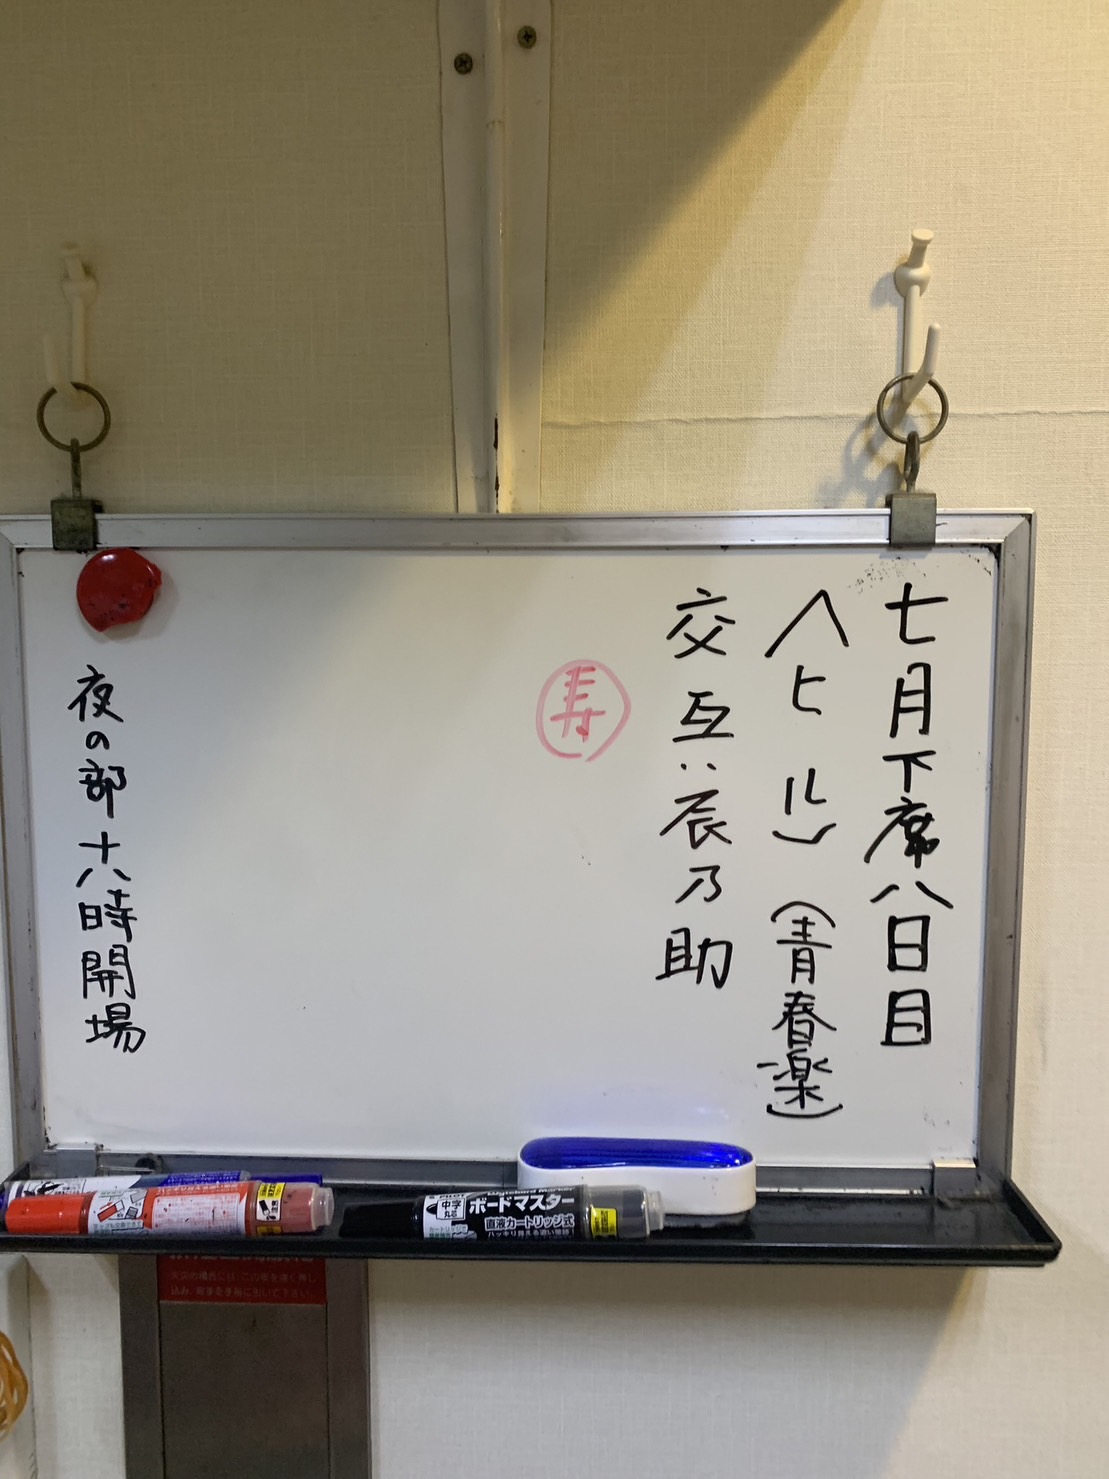 七月下席八日目
(ヒル)(青春楽)
交互:辰乃助
寿
夜の部十八時開場
中字
丸芯
ボードマスター
直液カートリッジ式
ハッキリ見える濃い筆跡!